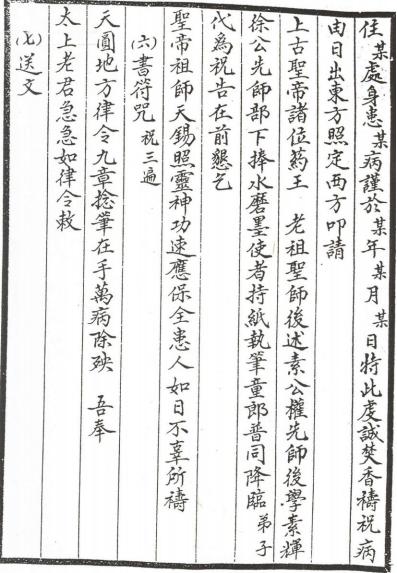 住某處身患某病謹於某年某月某日特此虔誠焚香禱祝病
由日出東方照定西方叩請
上古聖帝諸位药王　老祖聖師後述素公權先師後學素輝
徐公先師部下捧水磨墨使者持紙執筆童郎普同降臨弟子
代為祝告在前懇乞
聖帝祖師天錫照靈神功速應保全患人如日不辜所禱
(六)書符咒　祝三遍
天圓地方律令九章捻筆在手萬病除殃　吾奉
太上老君急急如律令敕
(七)送文